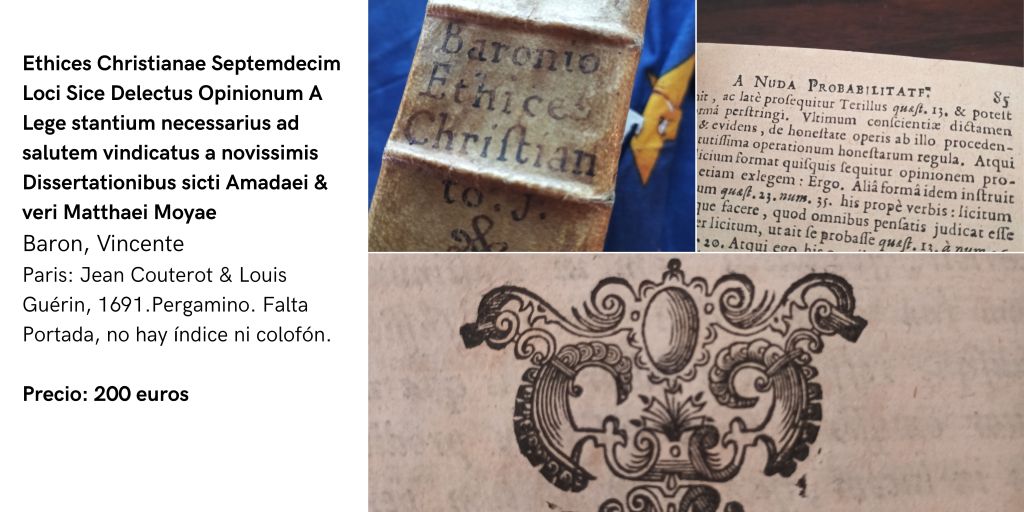 Ethices Christianae Septemdecim
Loci Sice Delectus Opinionum A
Lege stantium necessarius ad
salutem vindicatus a novissimis
Dissertationibus sicti Amadaei &
veri Matthaei Moyae
Baron, Vincente
Paris: Jean Couterot & Louis
Guérin, 1691.Pergamino. Falta
Portada, no hay índice ni colofón.
Precio: 200 euros
Baronio
Ethices
Chriſtian
to. J.
A NUDA PROBABILITATE. 85
, ac latè proſequitur Terillus quæſt. 13. & poteſt
perſtringi. Vltimum conſcientiæ dictamen
& evidens, de honeſtate operis ab illo proceden-
operationum honeſtarum regula. Atqui
format quiſquis ſequitur opinionem pro-
etiam exlegem: Ergo. Aliâ formâ idem inſtruit
quæſt. 23. num. 35. his propè verbis: licitum
facere, quod omnibus penſatis judicat eſſe
licitum, ut ait ſe probaſſe quæſt. 13. à num.
20. Atqui ego